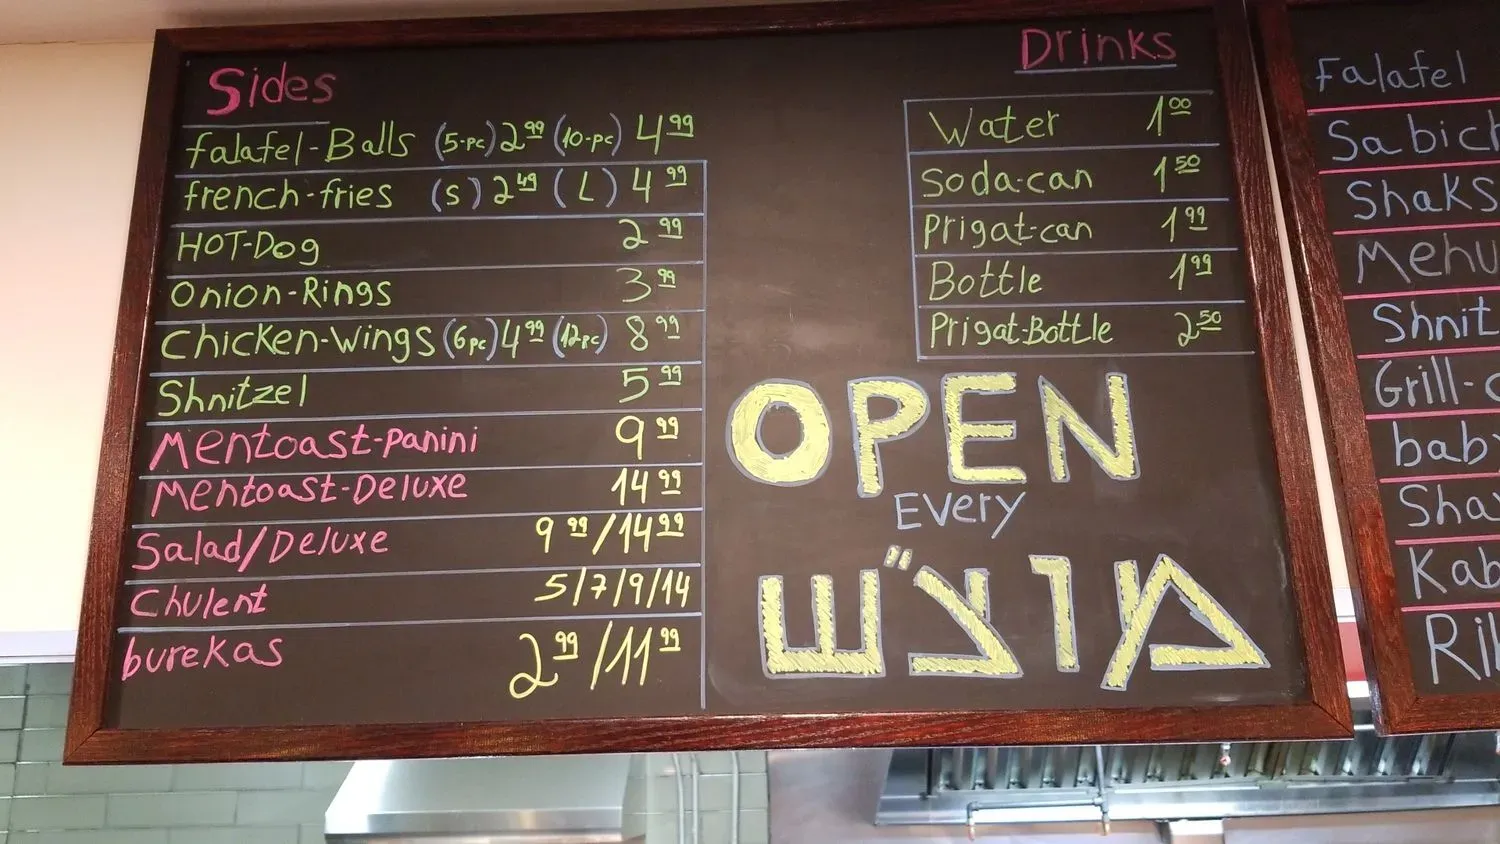 Sides
falafel-Balls (5-pc) 2.99 (10-pc) 4.99
french-fries (S) 2.49 (L) 4.99
HOT-DOg 2.99
Onion-Rings 3.99
Chicken-Wings (6pc) 4.99 (12pc) 8.99
Shnitzel 5.99
Mentoast-panini 9.99
Mentoast-Deluxe 14.99
Salad/Deluxe 9.99/14.99
Chulent 5/7/9/14
burekas 2.99/11.99
Drinks
Water 1.00
Soda-can 1.50
Prigat-can 1.99
Bottle 1.99
Prigat-Bottle 2.50
OPEN
Every
מוצ"ש
Falafel
Sabich